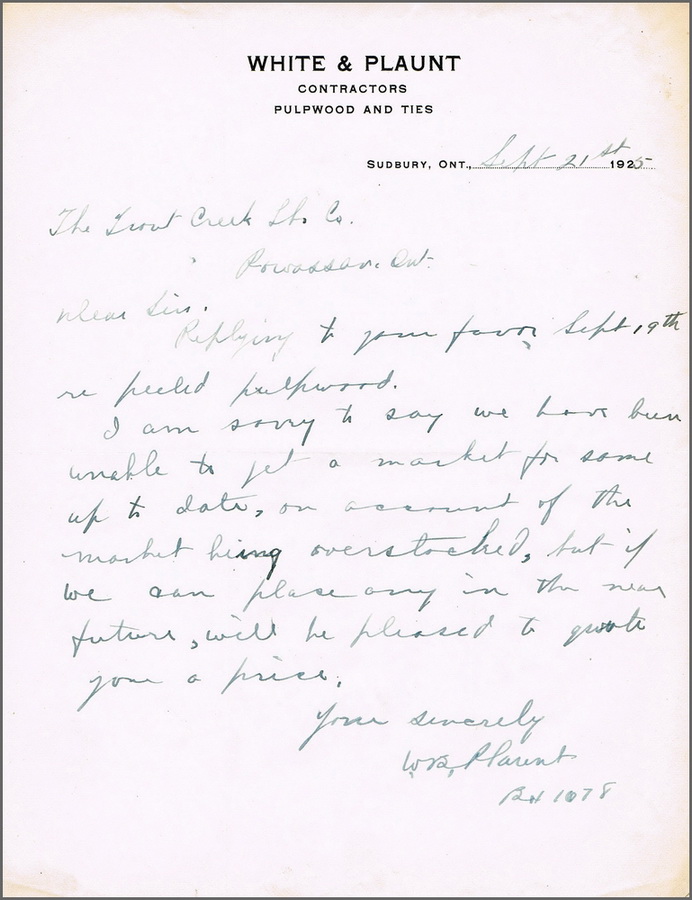 WHITE & PLAUNT
CONTRACTORS
PULPWOOD AND TIES
SUDBURY, ONT., Sept 21st 1925
The Trout Creek Lbr Co.
Powassan. Ont.
Dear Sir.
Replying to your favor Sept 19th
re peeled pulpwood.
I am sorry to say we have been
unable to get a market for same
up to date, on account of the
market being overstocked, but if
we can place any in the near
future, will be pleased to quote
you a price.
Your sincerely
W.B. Plaunt
Bx 1078